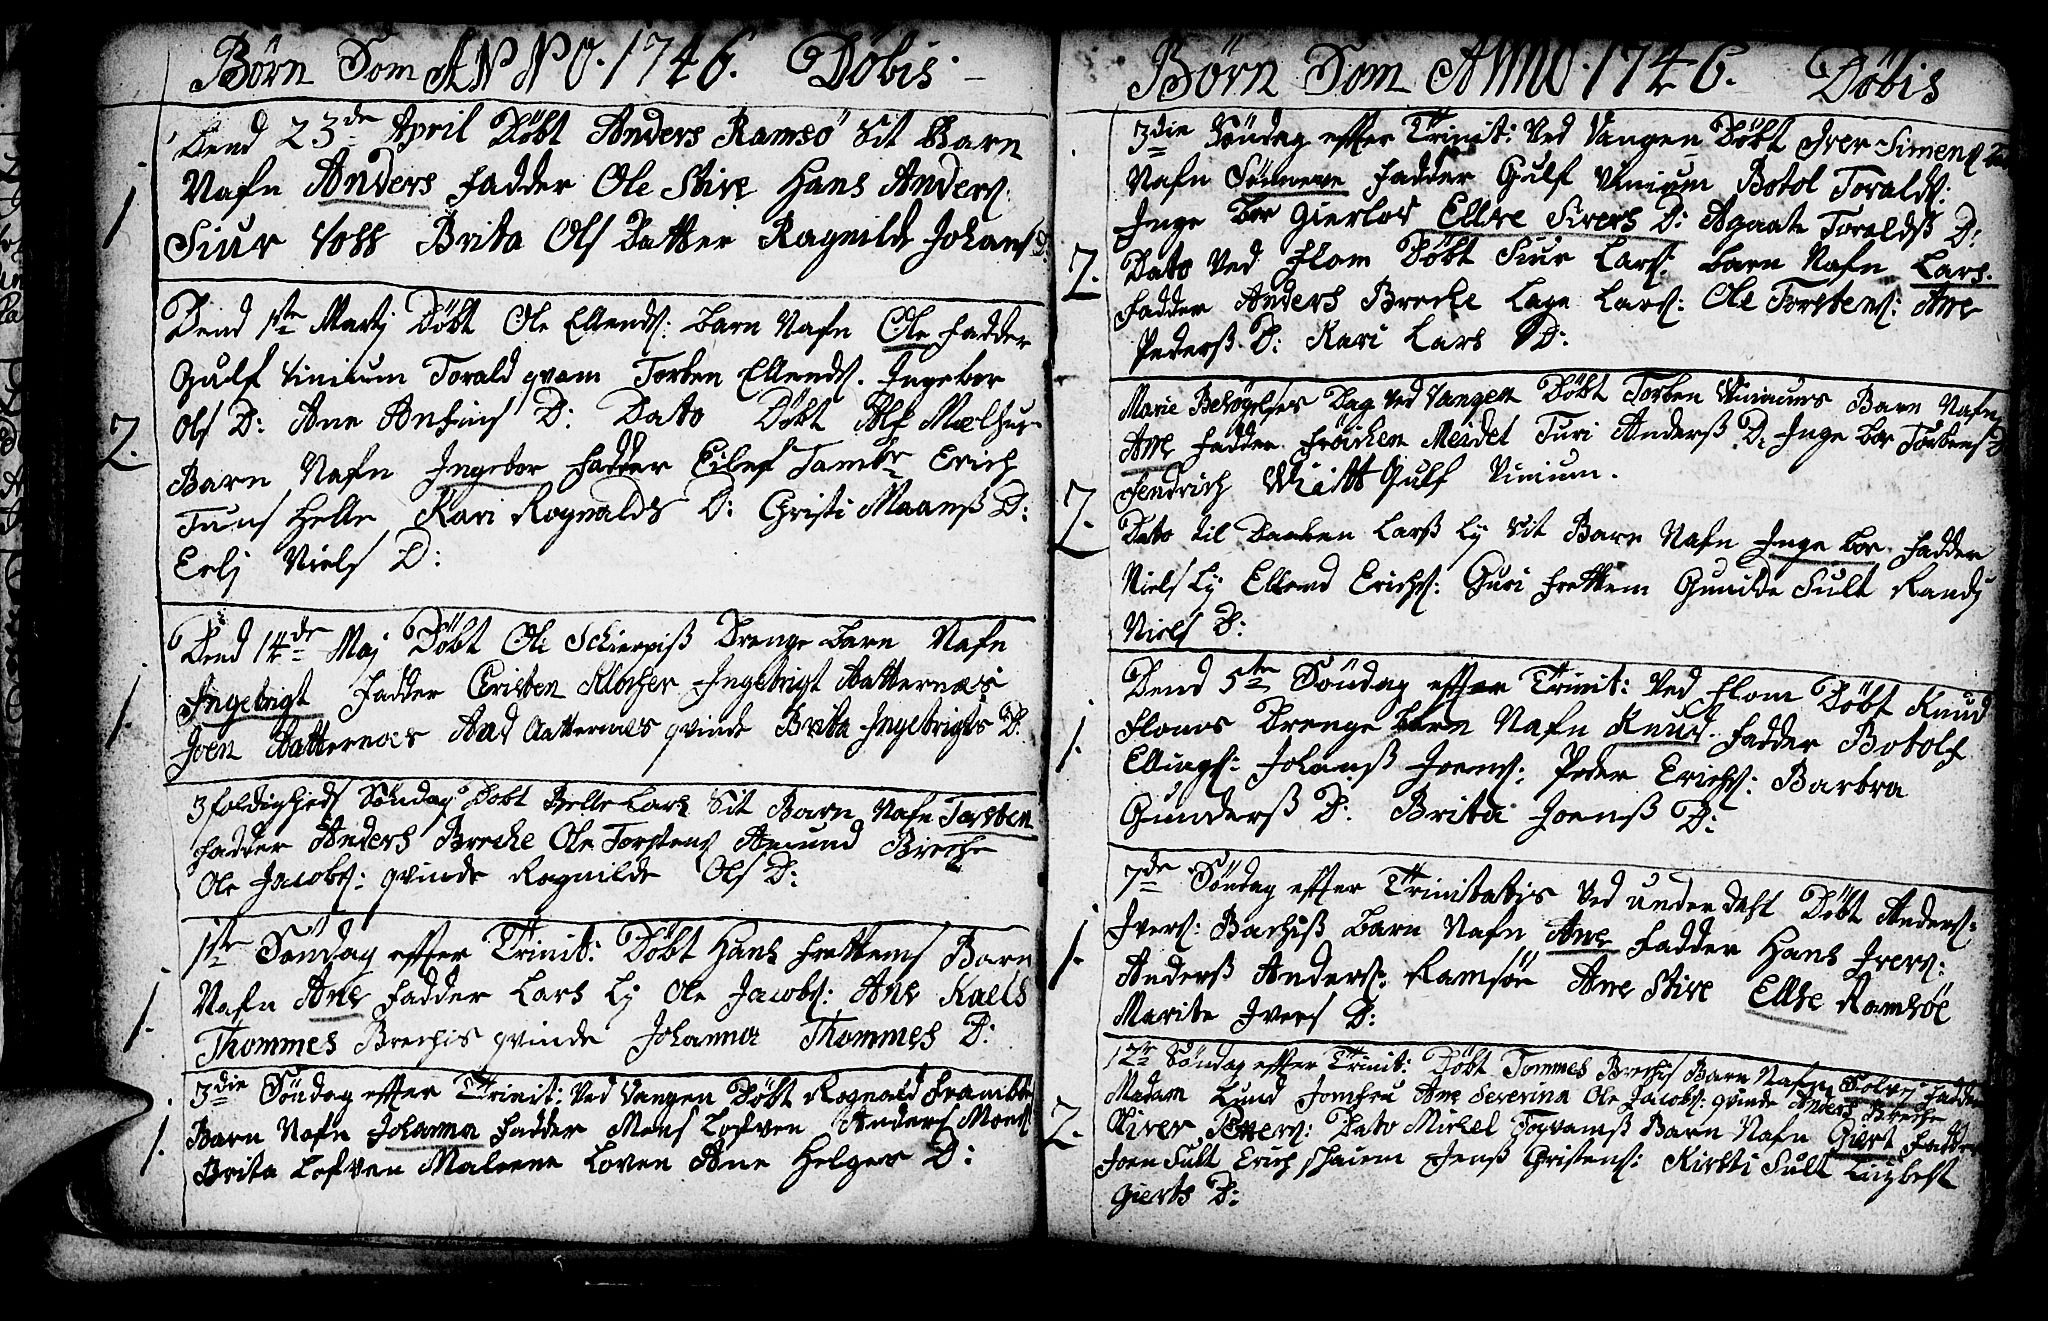 Børn Som ANNO. 1746. Döbis.
Dend 23de April Döbt Anders Ramsö Sit Barn
1 Nafn Anders Fadder Ole Stire Hans Anders:
Siur Voss Brita Ols Datter Ragnilde Johans D:
Dend 1ste Maij Döbt Ole Ellends: barn Nafn Ole Fadder
Gulf Vinium Torald qvam Torben Ellends. Ingebor
2. Ols D: Ane Anfins D: Dato Döbt Alf Mælhus
Barn Nafn Ingebor Fadder Eilef Erich
Helle Kari Rognalds D: Christi Maanß D:
Erlj Niels D:
Dend 14de Maj Döbt Ole Drenge Barn Nafn
1. Ingebrigt Fadder Cristen Klocher Ingebrigt Aatternæs
Joen Aatternæs And Aatternæs qvinde Brita Ingebrigts D:
3foldigheds Söndag Döbt Helle Lars Sit Barn Nafn Torsten
Fadder Anders Breche Ole Torstens Amund Breche
Ole Jacobs: qvinde Rognilde Ols D:
1ste Söndag effter Trinit: Döbt Hans Frettems Barn
1. Nafn Ane Fadder Lars Lj Ole Jacobs: Ane Kaels
Thommes Brechis qvinde Johanna Thommes D:
3die Söndag effter Trinit: Ved Vangen Döbt Rognald
1. Barn Nafn Johanna Fadder Mons Lofven Anders Mons:
Brita Lofven Maleene Loven Ane Helges D:
Børn Som ANNO. 1746. Döbis
3die Söndag effter Trinit: Ved Vangen Döbt Iver Simens
Nafn Sönneve Fadder Gulf Vinium Botol Toralds:
Inge bor Gierlov Ellse Sivers D: Agaate Toraldß D:
2. Dato Ved Flom Döbt Siur Lars: barn Nafn Lars.
Fadder Anders Breche Lage Lars: Ole Torstens: Ane
Pederß D: Kari Lars D:
Marie Besögelses Dag Ved Vangen Döbt Torben Viniums Barn Nafn
Ane Fadder Fröichen Meidel Turi Anderß D: Inge bor Torbens D
2. Hendrich Gulf Vinium.
Dato til Daaben Larß Lj Sit Barn Nafn Inge bor Fadder
Niels Lj Ellend Erichs: Guri Frettem Gunilde Fult Randj
Niels D:
Dend 5te Söndag effter Trinit: Ved Flom Döbt Knud
1. Floms Drenge barn Nafn Knud. Fadder Botolf
Ellings: Johanß Joens: Peder Erichs: Barbra
Gunderß D: Brita Joenß D:
7de Söndag effter Trinitatis Ved underdahl Döbt Anders:
1. Ivers: Bachiß barn Nafn Ane Fadder Hans Ivers:
Anderß Anders: Ramsöe Ane Stire Ellse Ramsöe
Marite Ivers D:
12te Söndag effter Trinit: Döbt Tommes Brechis Barn Nafn Solvj Fadder
Madam Lund Jomfru Ane Severina Ole Jacobs: qvinde Anders Breche
2. Siver Ivers: Dato Michel Barn Nafn Giert Fadder
Joen Fult Erich Jenß Christens: Kirsti Fult
Gierts D: